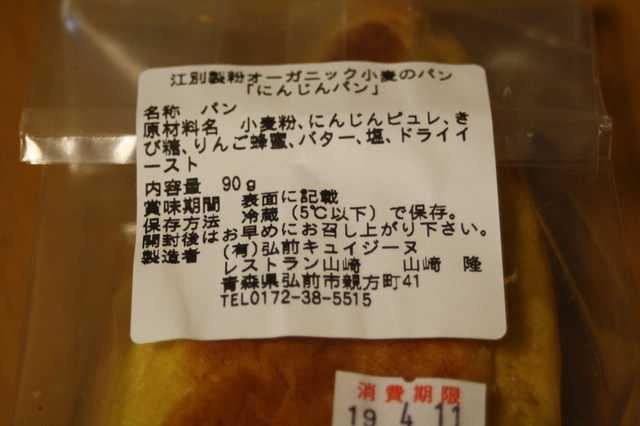 江別製粉オーガニック小麦のパン
「にんじんパン」
名称　パン
原材料名　小麦粉、にんじんピュレ、き
び糖、りんご蜂蜜、バター、塩、ドライイ
ースト
内容量　90g
賞味期間　表面に記載
保存方法　冷蔵（5℃以下）で保存。
開封後はお早めにお召し上がり下さい。
製造者　(有)弘前キュイジーヌ
レストラン山崎　山崎　隆
青森県弘前市親方町41
TEL0172-38-5515
消費期限
19 4 11